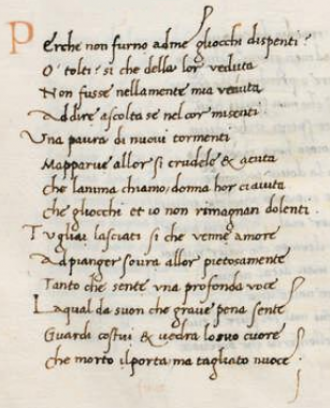 Perche non furno adme gliocchi dispenti?
O' tolti? si che della lor veduta
Non fusse nellamente mia venuta
Addire ascolta se nel cor misenti
Una paura di nuovi tormenti
Mapparue allor si crudele & acuta
che lanima chiamo, donna hor ciauita
che gliocchi et io non rimagnan dolenti.
Tu gliai lasciati si che venne amore
Adpianger soura allor pietosamente
Tanto che sente vna profonda voce
Laqual da suon che graue pena sente
Guardi costui & uedra lo suo cuore
che morto ilporta ma tagliato nuoce